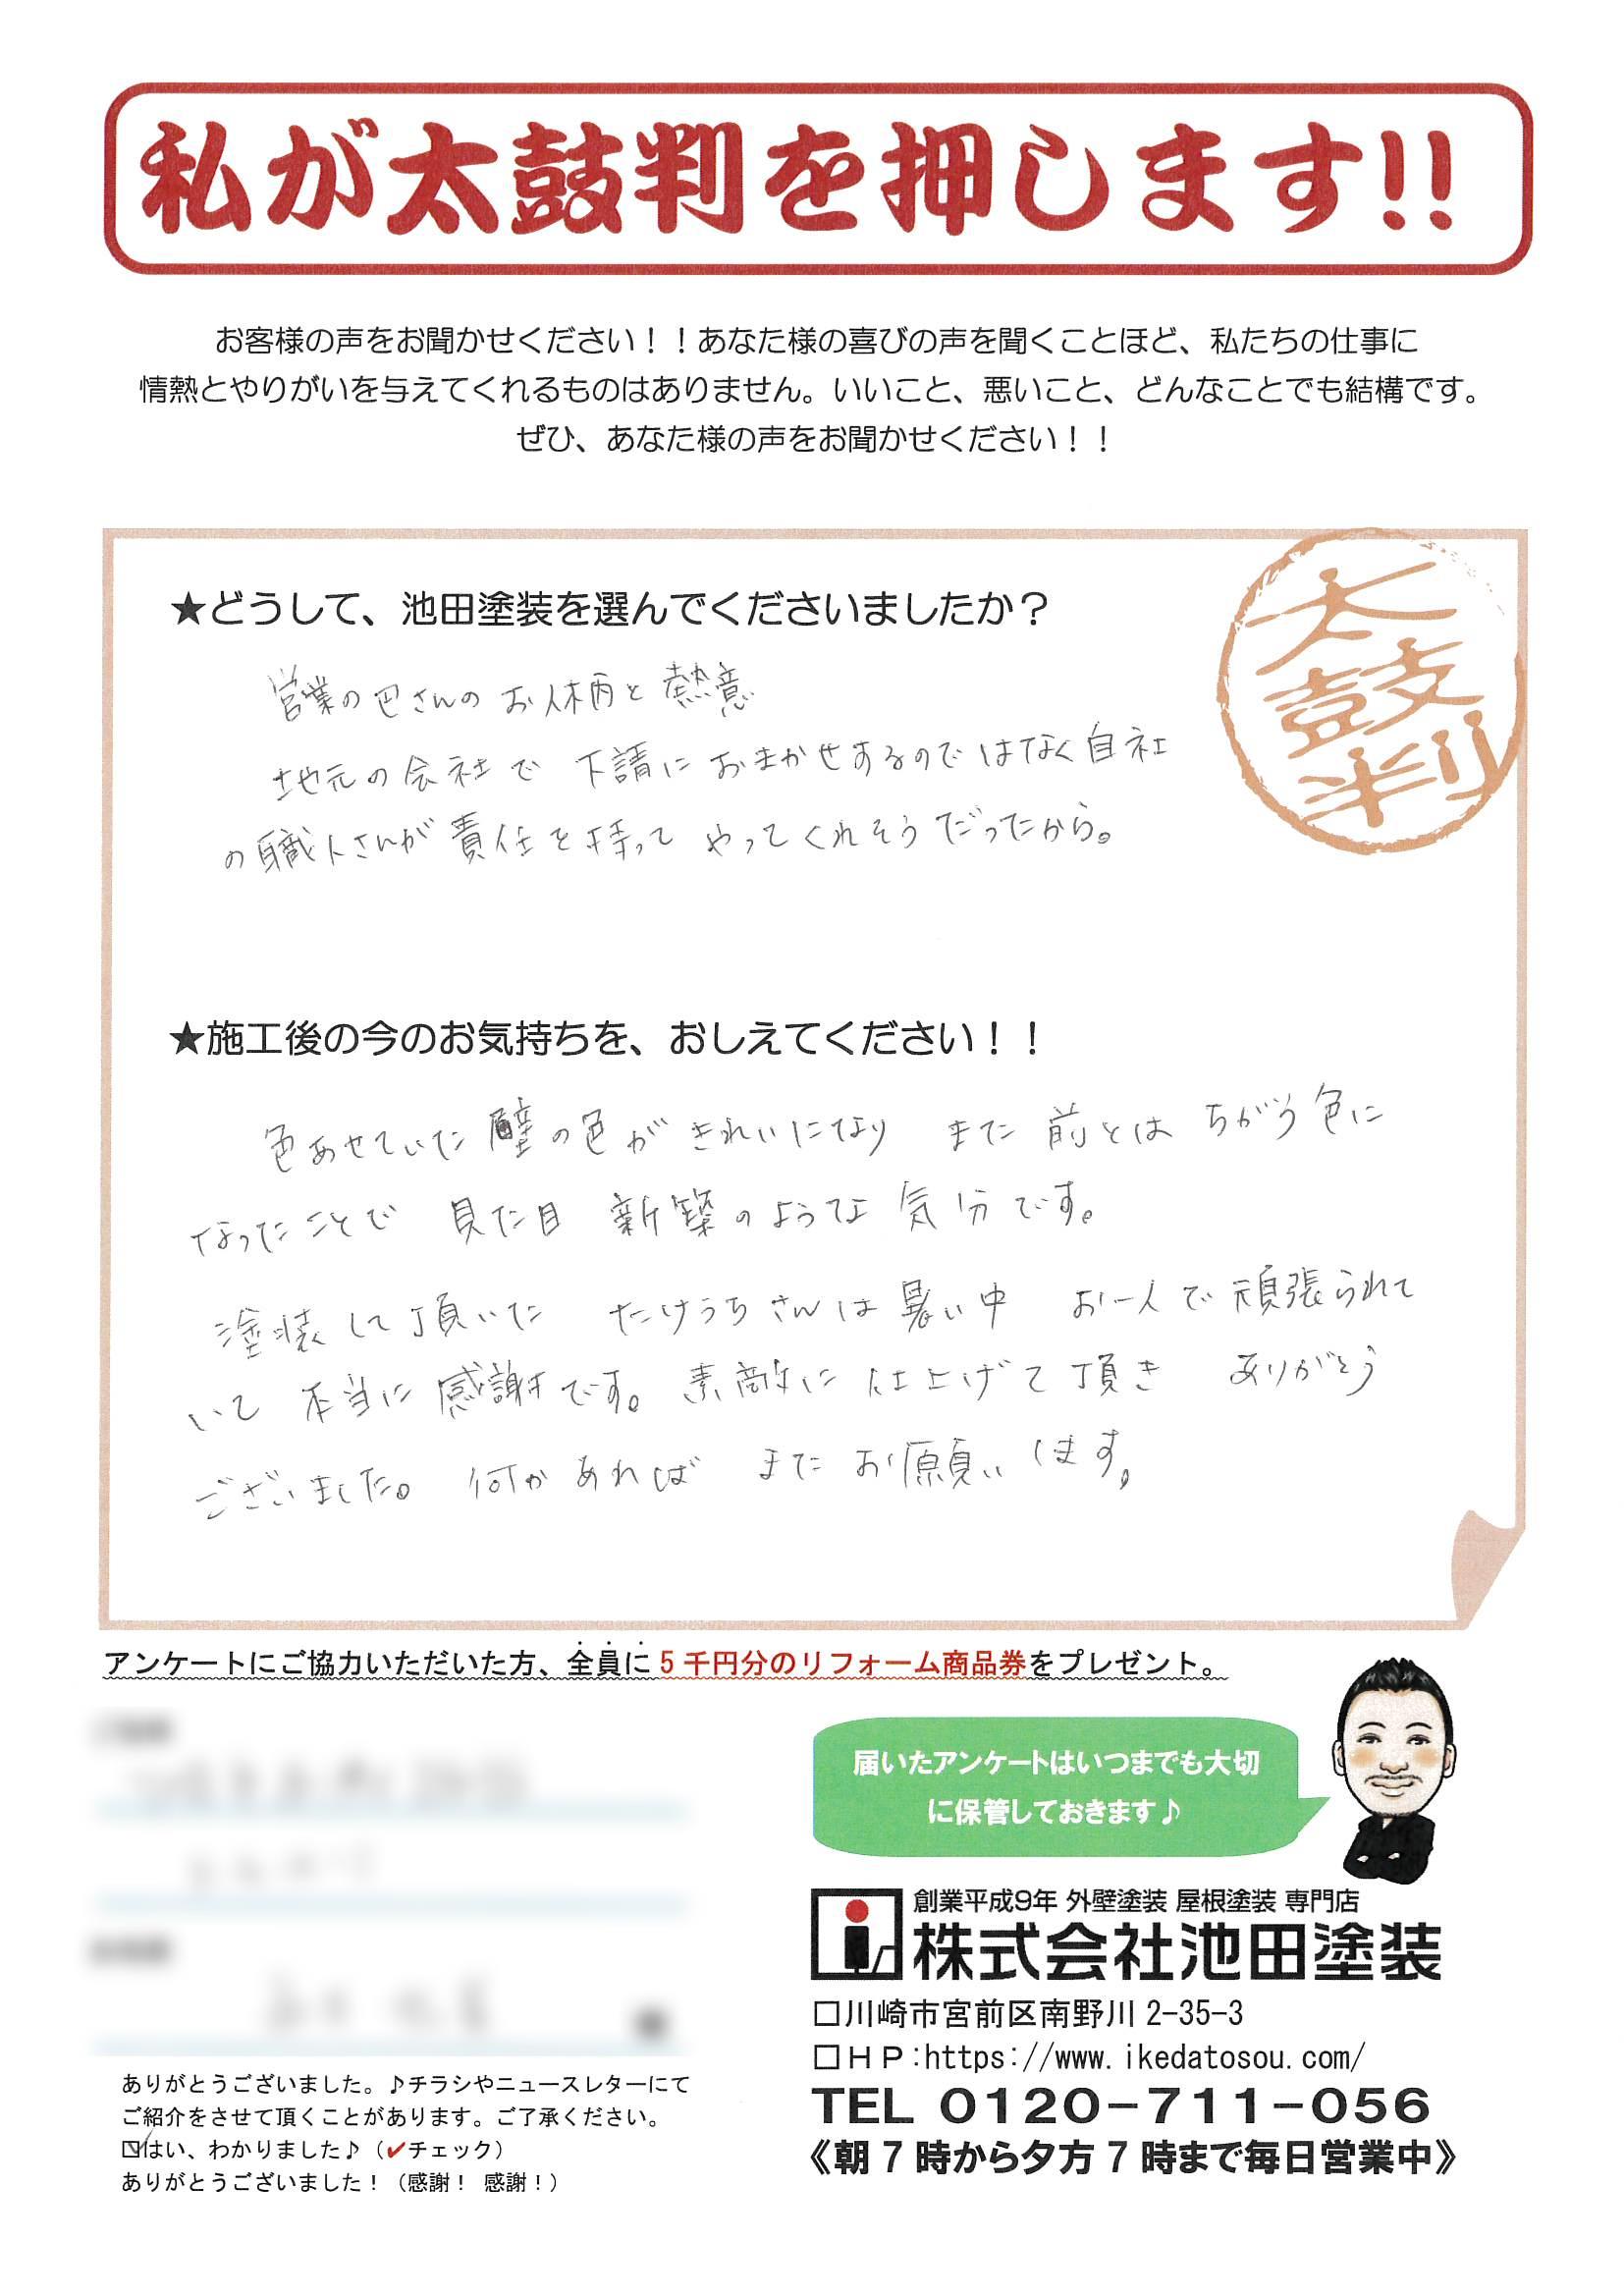 私が太鼓判を押します!!
お客様の声をお聞かせください！！あなた様の喜びの声を聞くことほど、私たちの仕事に
情熱とやりがいを与えてくれるものはありません。いいこと、悪いこと、どんなことでも結構です。
ぜひ、あなた様の声をお聞かせください！！
太鼓判
★どうして、池田塗装を選んでくださいましたか？
営業の巴さんのお人柄と熱意
地元の会社で 下請におまかせするのではなく自社
の職人さんが責任を持って やってくれそうだったから。
★施工後の今のお気持ちを、おしえてください！！
色あせていた壁の色がきれいになり また前とは ちがう色に
なったことで 見た目 新築のような気分です。
塗装して頂いた たけうちさんは暑い中 お一人で頑張られて
いて 本当に感謝です。素敵に仕上げて頂き ありがとう
ございました。何かあれば またお願いします。
アンケートにご協力いただいた方、全員に5千円分のリフォーム商品券をプレゼント。
届いたアンケートはいつまでも大切
に保管しておきます♪
創業平成9年 外壁塗装 屋根塗装 専門店
株式会社池田塗装
□川崎市宮前区南野川2-35-3
□ＨＰ:https://www.ikedatosou.com/
TEL 0120-711-056
《朝7時から夕方7時まで毎日営業中》
ありがとうございました。♪チラシやニュースレターにて
ご紹介をさせて頂くことがあります。ご了承ください。
☑はい、わかりました♪（✔チェック）
ありがとうございました！（感謝！ 感謝！）